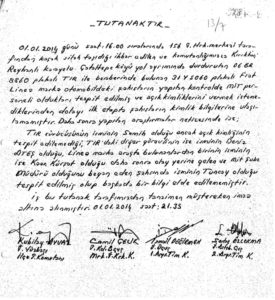 -TUTANAKTIR-
01.01.2014 günü saat 16.00 sıralarında 156 J. Hrk. merkezi tara-
fından kaçak silah taşıdığı ihbar edilen ve komutanlığımızca Kırıkhan
Reyhanlı karayolu Çataltepe köyü yol ayrımında durdurulan 06 BR
8860 plakalı TIR ile beraberinde bulunan 31 Y 5060 plakalı Fiat
Linea marka otomobildeki şahısların yapılan kontrolde MİT per-
soneli oldukları tespit edilmiş ve açık kimliklerini vermek isteme-
diklerinden dolayı ilk etapta şahısların kimlik bilgilerine ulaşı-
lamamıştır. Daha sonra yapılan araştırmalar neticesinde ise,
TIR sürücüsünün isminin Semih olduğu ancak açık kimliğinin
tespit edilemediği, TIR'daki diğer görevlinin ise isminin Deniz
olduğu, Linea marka araçta bulunanlardan birinin isminin
ise olduğu daha sonra olay yerine gelen ve MİT Şube
Müdürü olduğunu beyan eden şahsında isminin Tuncay olduğu
tespit edilmiş olup başkada bir bilgi elde edilememiştir.
İş bu tutanak tarafımızdan tanzimen müştereken imza
altına alınmıştır. 01.01.2014 saat: 21.35
Kubilay Camil ÇELİK İsmail